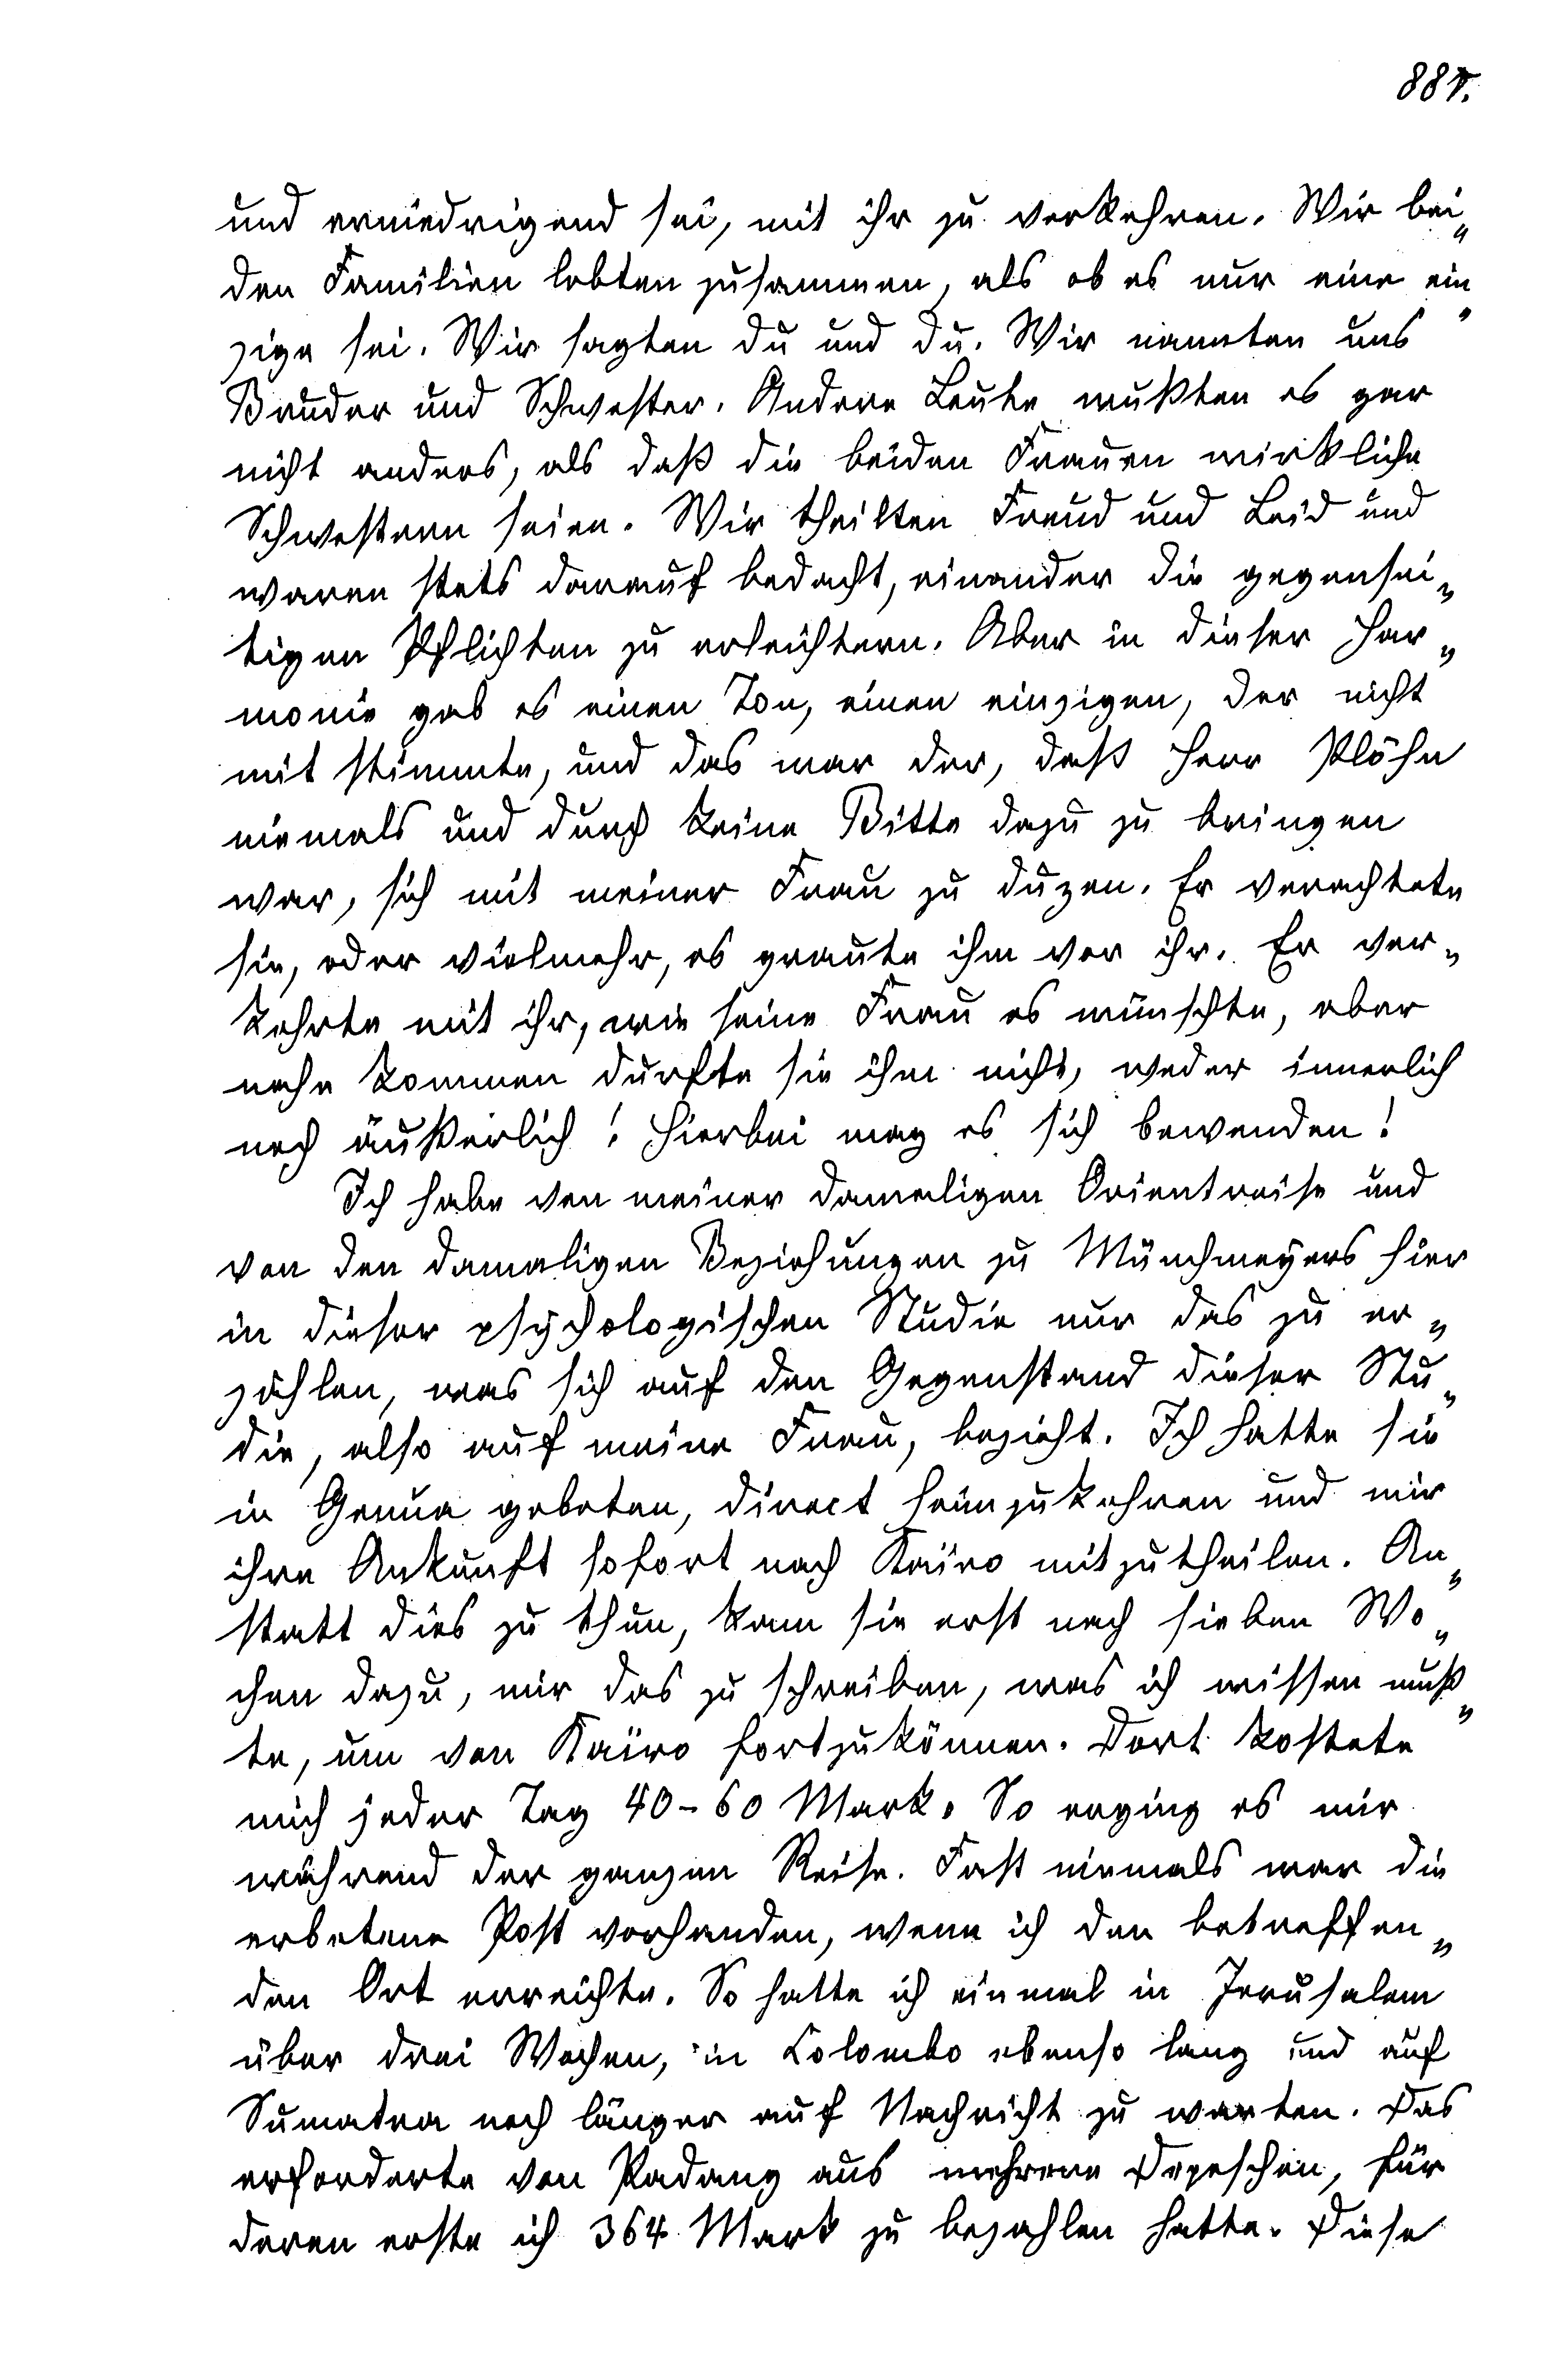 887.
und erniedrigend sei, mit ihr zu verkehren. Wir bei„
den Familien lebten zusammen, als ob es nur eine ein„
zige sei. Wir sagten du und du. Wir nannten uns
Bruder und Schwester. Andere Leute wußten es gar
nicht anders, als daß die beiden Frauen wirkliche
Schwestern seien. Wir theilten Freud und Leid und
waren stets darauf bedacht, einander die gegensei„
tigen Pflichten zu erleichtern. Aber in dieser Har„
monie gab es einen Ton, einen einzigen, der nicht
mit stimmte, und das war der, daß Herr Plöhn
niemals und durch keine Bitte dazu zu bringen
war, sich mit meiner Frau zu duzen. Er verachtete
sie, oder vielmehr, es graute ihm vor ihr. Er ver„
kehrte mit ihr, wie seine Frau es wünschte, aber
nahe kommen durfte sie ihm nicht, weder innerlich
noch äußerlich! Hierbei mag es sich bewenden!
Ich habe von meiner damaligen Orientreise und
von den damaligen Beziehungen zu Münchmeyers hier
in dieser psychologischen Studie nur das zu er„
zählen, was sich auf den Gegenstand dieser Stu„
die, also auf meine Frau, bezieht. Ich hatte sie
in Genua gebeten, direct heimzukehren und mir
ihre Ankunft sofort nach Kairo mitzutheilen. An„
statt dies zu thun, kam sie erst nach sieben Wo„
chen dazu, mir das zu schreiben, was ich wissen muß„
te, um von Kairo fortzukönnen. Dort kostete
mich jeder Tag 40-60 Mark. So erging es mir
während der ganzen Reise. Fast niemals war die
erbetene Post vorhanden, wenn ich den betreffen„
den Ort erreichte. So hatte ich einmal in Jerusalem
über drei Wochen, in Colombo ebenso lang und auf
Sumatra noch länger auf Nachricht zu warten. Das
erforderte von Padang aus mehrere Depeschen, für
deren erste ich 364 Mark zu bezahlen hatte. Diese